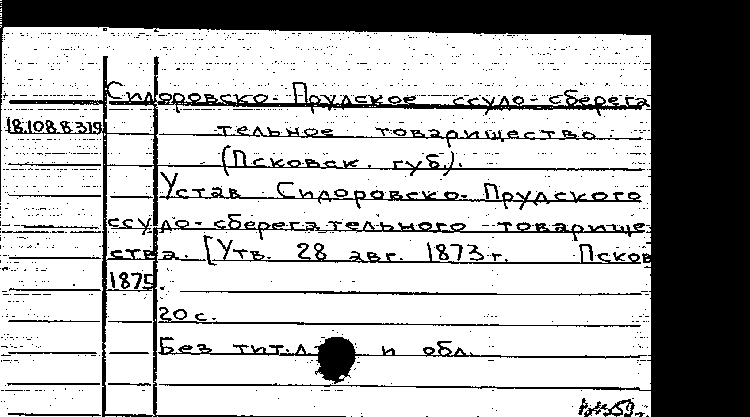 Сидоровско-Прудское ссудо-сберега
18.108.8.319 тельное товарищество
(Псковск. губ.).
Устав Сидоровско-Прудского
ссудо-сберегательного товарище
ства. [Утв. 28 авг. 1873 г. Псков
1875.
20 с.
Без тит. л. и обл.